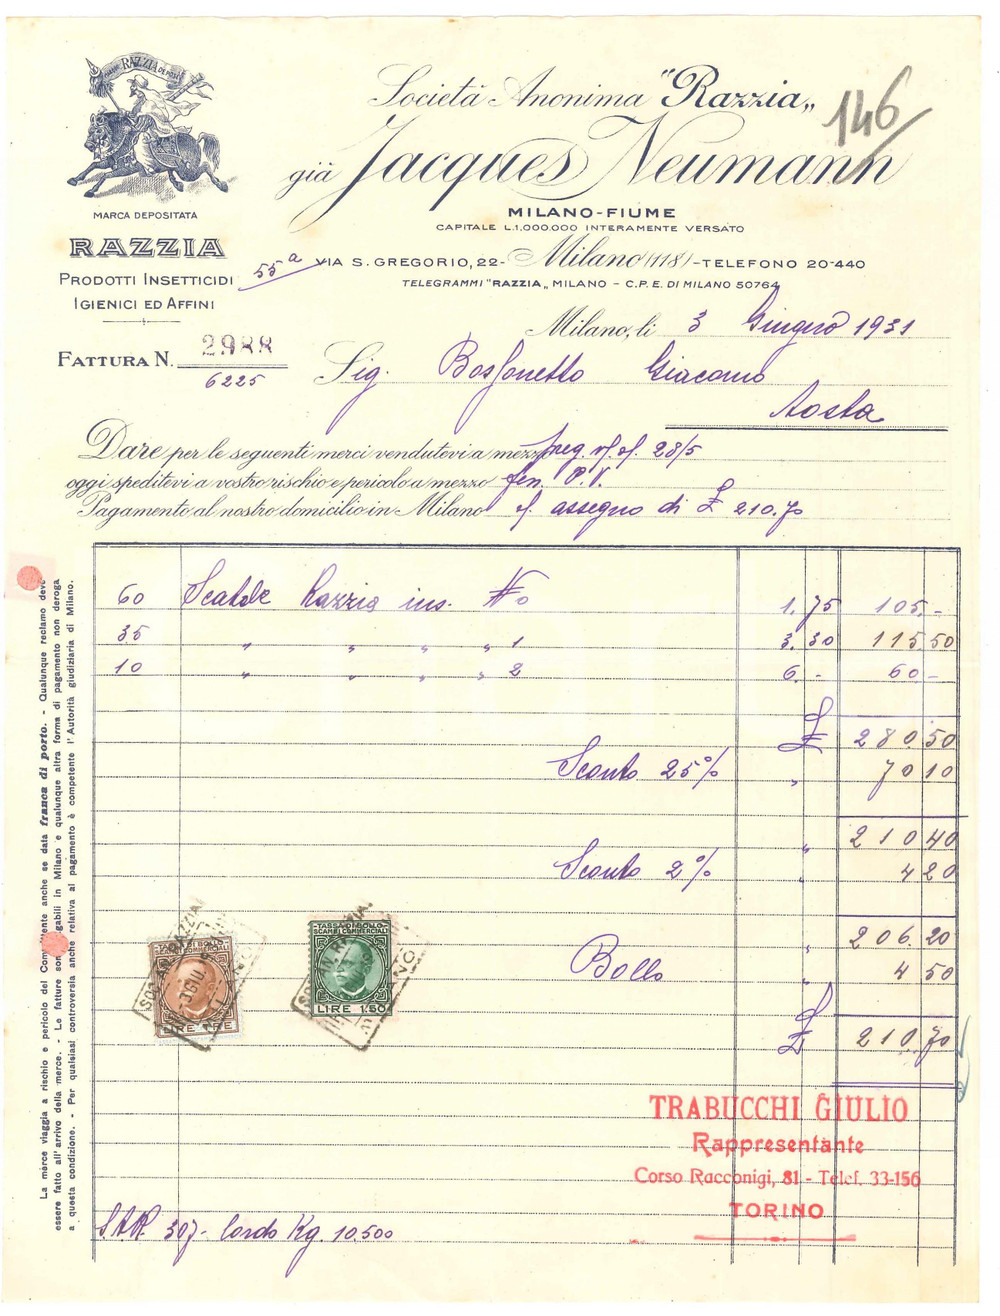 RAZZIA
Società Anonima "Razzia„
146
già Jacques Neumann
MILANO-FIUME
CAPITALE L.1.000.000 INTERAMENTE VERSATO
MARCA DEPOSITATA
RAZZIA
PRODOTTI INSETTICIDI
IGIENICI ED AFFINI
55a
VIA S. GREGORIO, 22- Milano (118) -TELEFONO 20-440
TELEGRAMMI "RAZZIA„ MILANO - C.P.E. DI MILANO 50764
Milano, li 3 Giugno 1931
FATTURA N. 2988
6225
Sig. Giacomo
Aosta
Dare per le seguenti merci vendutevi a mezzo 28/5
oggi speditevi a vostro rischio e pericolo a mezzo P.V.
Pagamento al nostro domicilio in Milano assegno di £ 210.70
60 Scatole Razzia ins. No 0 1.75 105.-
35 " " " " 1 3.30 115.50
10 " " " " 2 6.- 60-
£ 280.50
Sconto 25% " 70 10
" 210 40
Sconto 2% " 4 20
" 206.20
Bollo " 4 50
£ 210.70
TASSA DI BOLLO
SCAMBI COMMERCIALI
LIRE TRE
TASSA DI BOLLO
SCAMBI COMMERCIALI
LIRE 1.50
TRABUCCHI GIULIO
Rappresentante
Corso Racconigi, 81 - Telef. 33-156
TORINO
307- lordo Kg. 10.500
La merce viaggia a rischio e pericolo del Committente anche se data franca di porto. - Qualunque reclamo deve
essere fatto all'arrivo della merce. - Le fatture sono pagabili in Milano e qualunque altra forma di pagamento non deroga
a questa condizione. - Per qualsiasi controversia anche relativa al pagamento è competente l'Autorità giudiziaria di Milano.